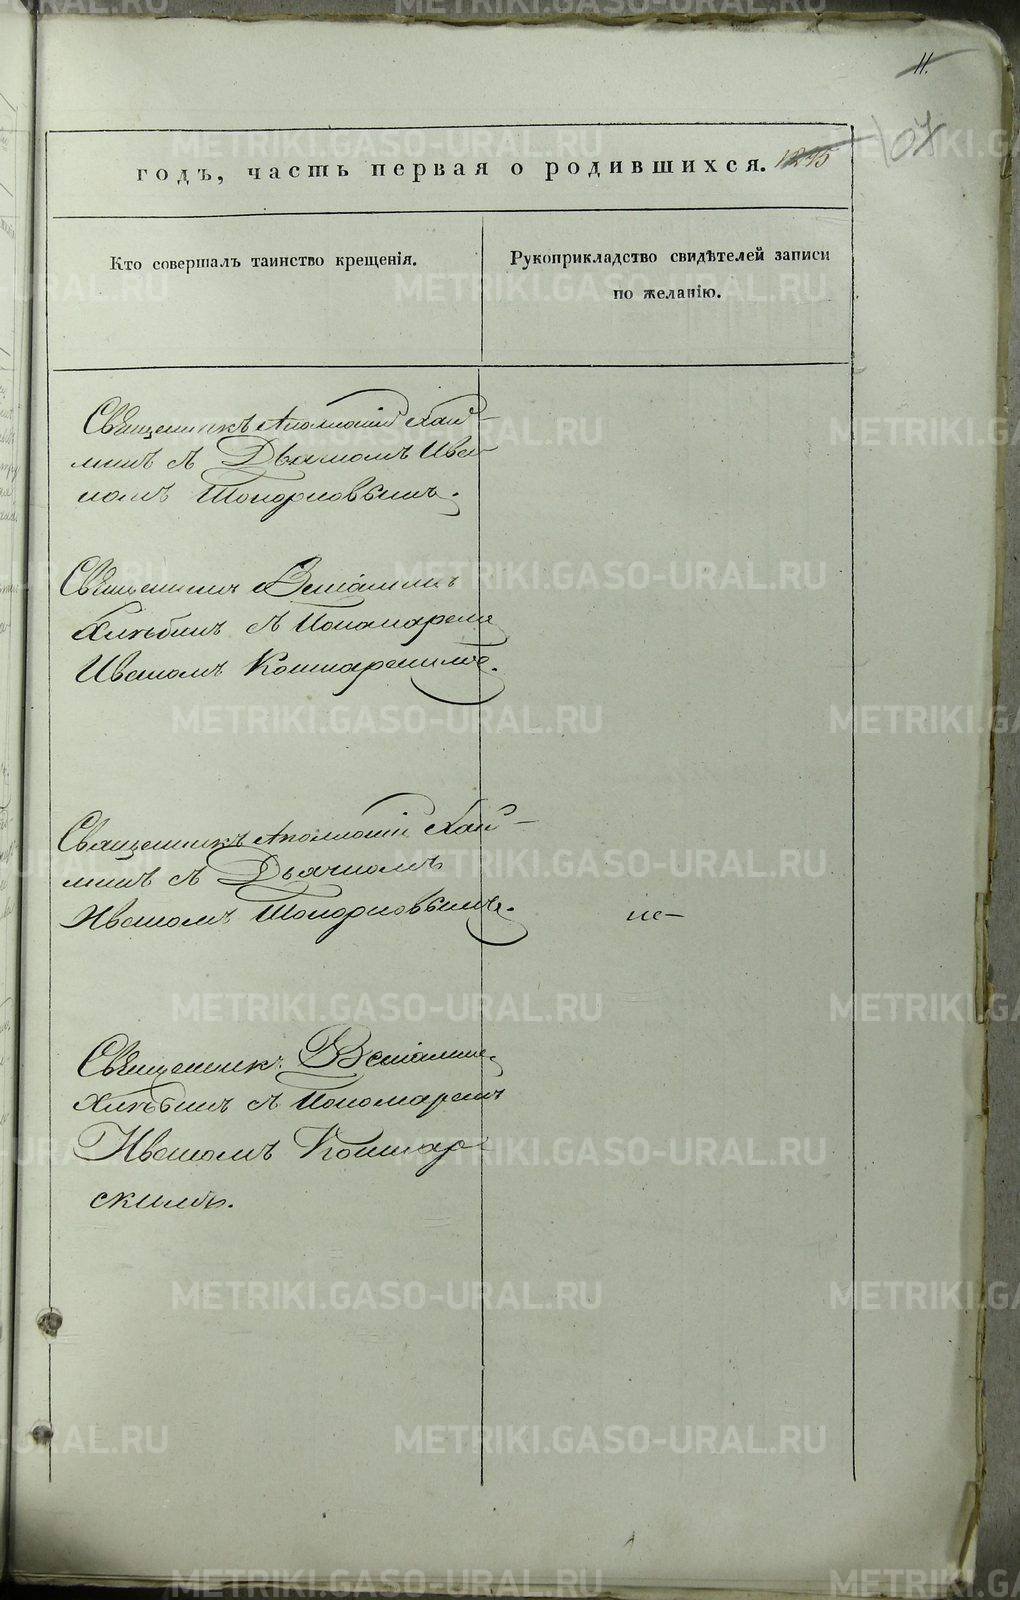 11.
годъ, часть первая о родившихся.
Кто совершалъ таинство крещенія.
Рукоприкладство свидѣтелей записи
по желанію.
Священникъ Аполлоній Хай-
минъ съ Дьячкомъ Ива-
номъ Топорковымъ.
Священникъ Веніаминъ
Хлѣбинъ съ Пономаремъ
Иваномъ
Священникъ Аполлоній Хай-
минъ съ Дьячкомъ
Иваномъ Топорковымъ.
Священникъ Веніаминъ
Хлѣбинъ съ Пономаремъ
Иваномъ
скимъ.
METRIKI.GASO-URAL.RU